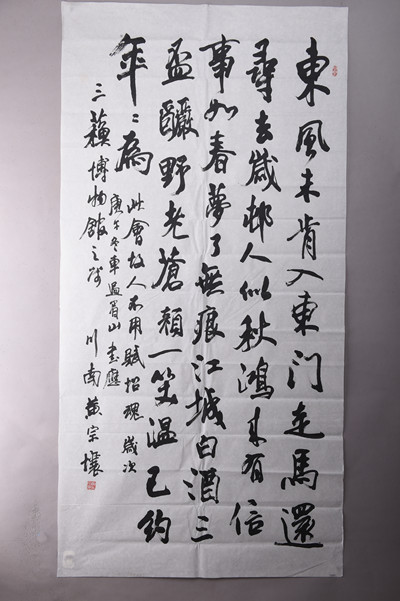 東風未肯入東門走馬還
尋去歲邨人似秋鴻來有信
事如春夢了無痕江城白酒三
盃釅野老蒼顏一笑温已約
年〻爲此會故人不用賦招魂歲次
庚午冬車過眉山書應
三蘇博物館之 川南黄宗壤